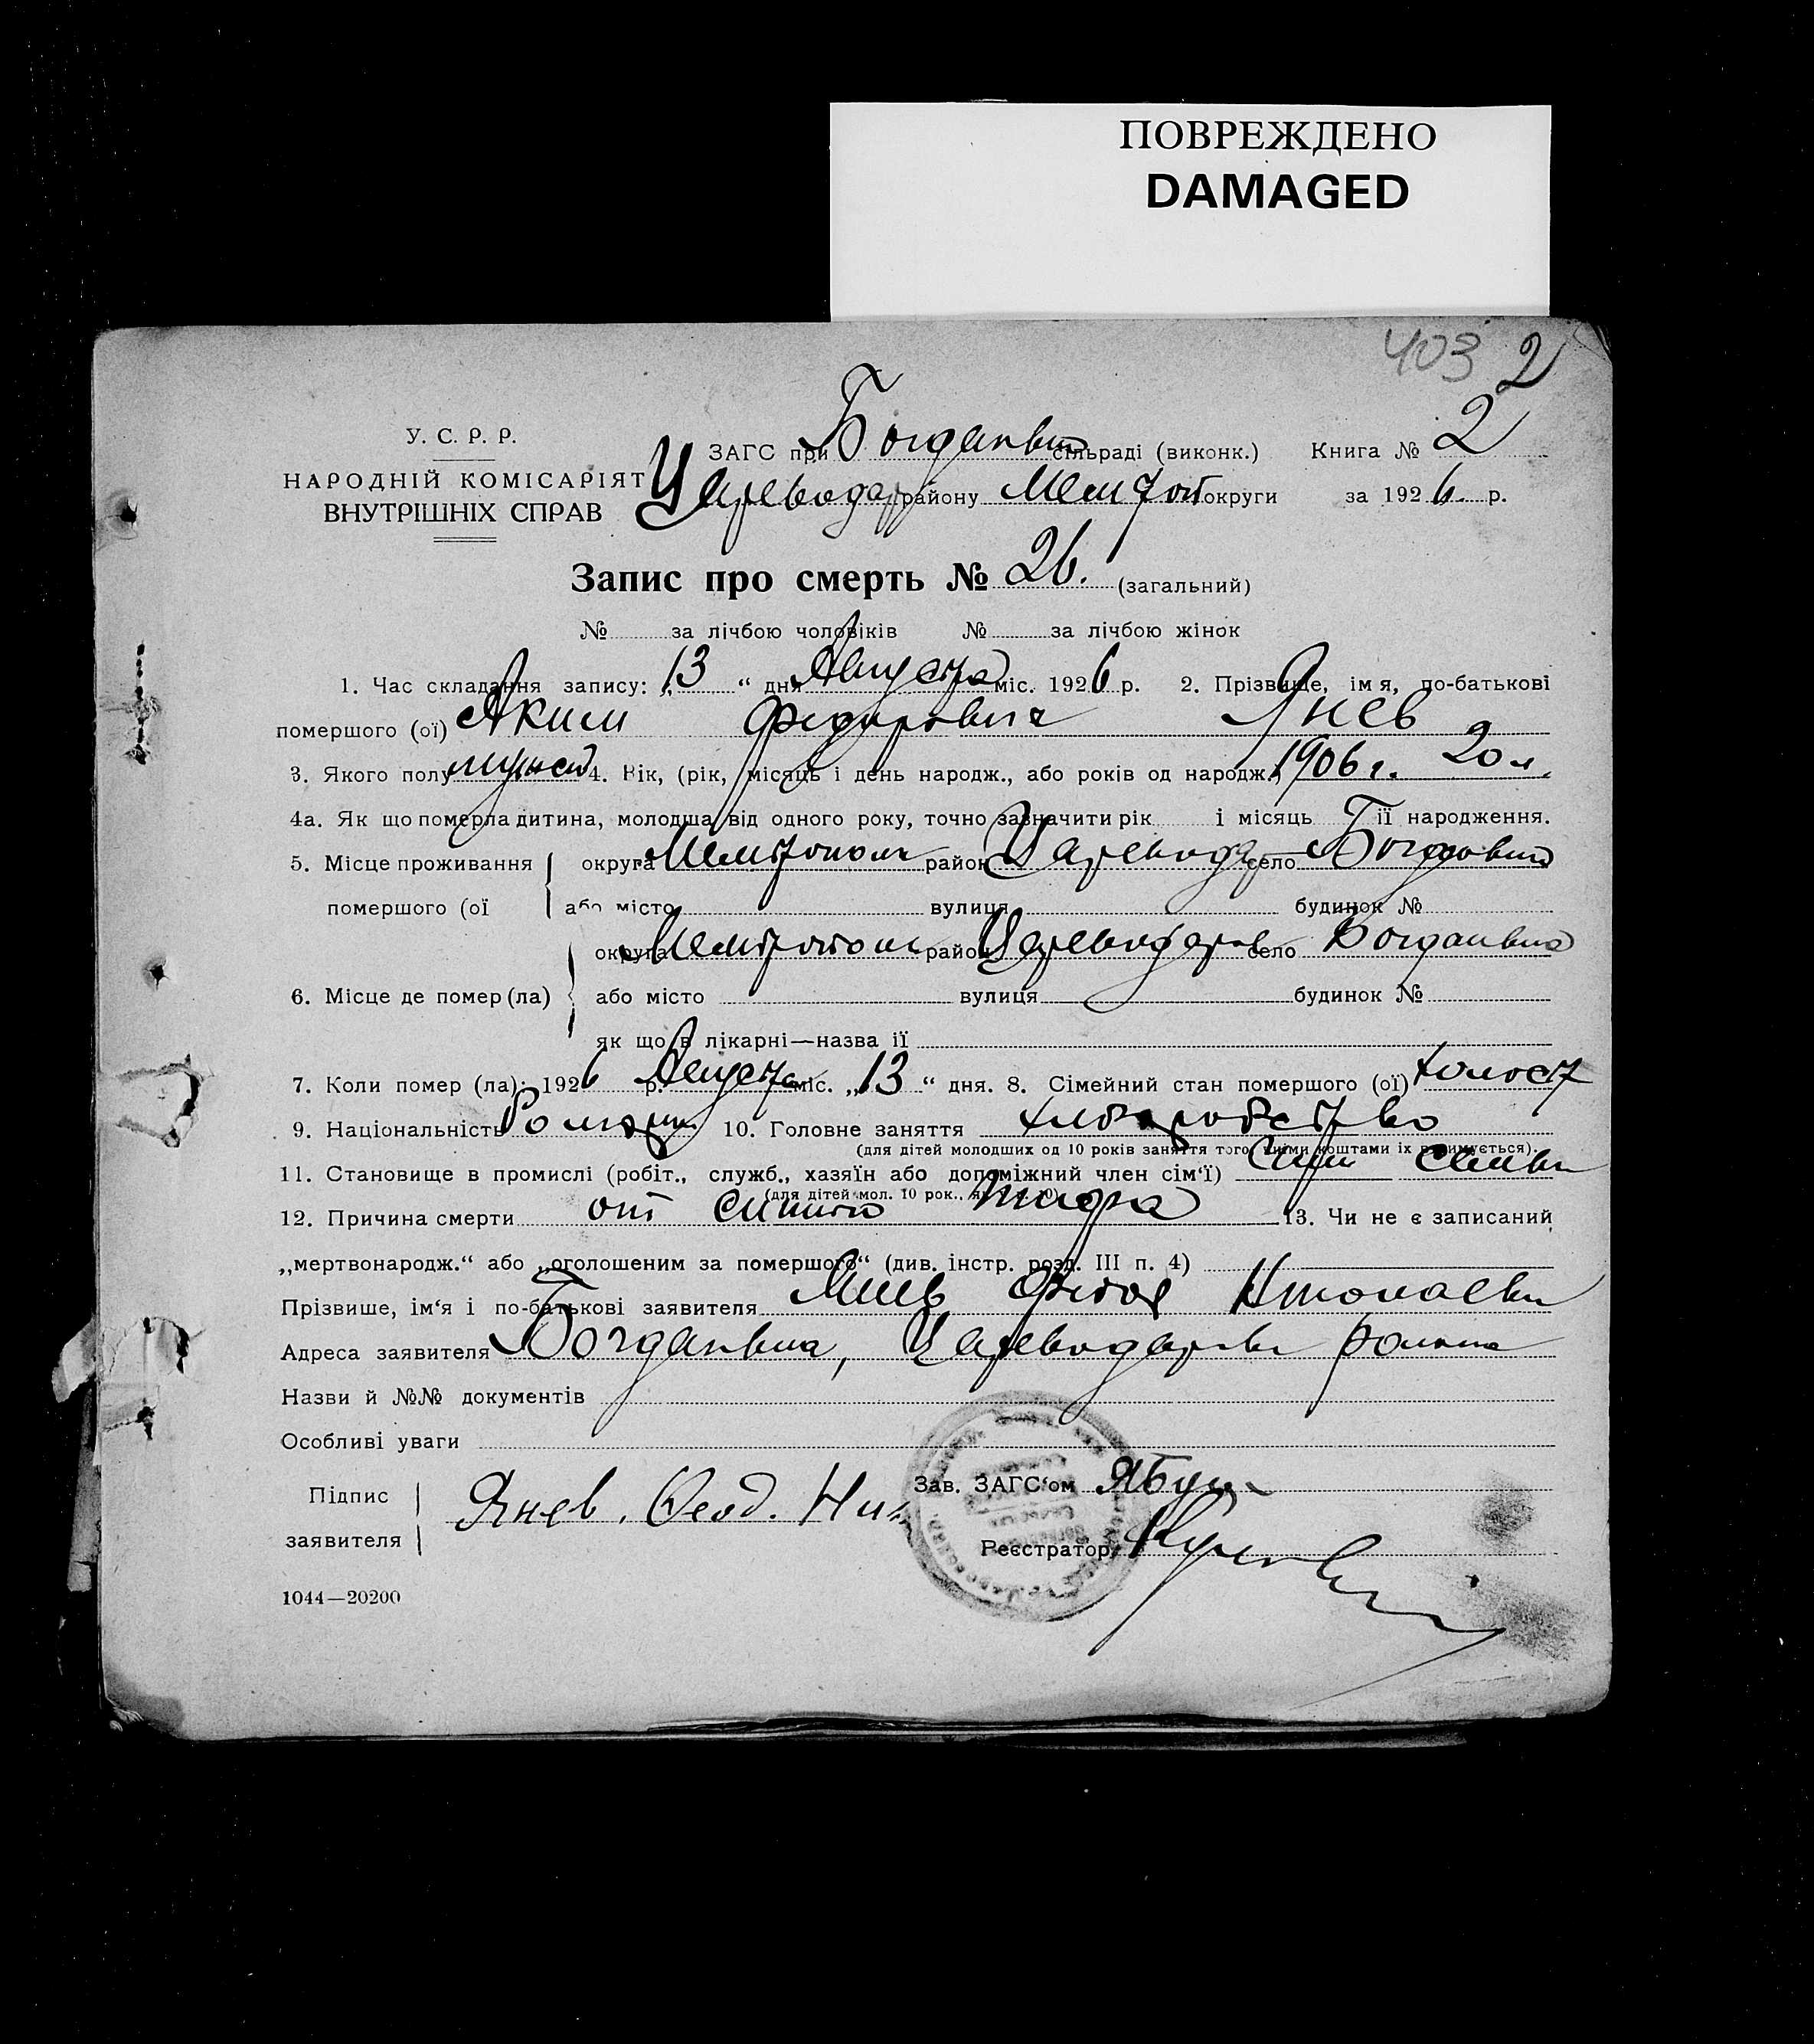 ПОВРЕЖДЕНО
DAMAGED
403 2
У. С. Р. Р.
НАРОДНІЙ КОМІСАРІЯТ
ВНУТРІШНІХ СПРАВ
ЗАГС при Богдановка сільраді (виконк.) Книга № 2
Цареводар району Мелітоп округи за 1926 р.
Запис про смерть № 26. (загальний)
№ за лічбою чоловіків № за лічбою жінок
1. Час складання запису: „13“ дня Августа міс. 1926 р. 2. Прізвище, ім я, по-батькові
помершого (ої) Аким Федорович Янев
3. Якого полу мужск 4. Вік, (рік, місяць і день народж., або років од народж.) 1906 г. 20 л.
4а. Як що померла дитина, молодша від одного року, точно зазначити рік і місяць її народження.
5. Місце проживання округа Мелитополь район Цареводар село Богдановка
помершого (ої або місто вулиця будинок №
округа Мелитополь район Цареводаров село Богдановка
6. Місце де помер (ла) або місто вулиця будинок №
як що в лікарні—назва її
7. Коли помер (ла): 1926 р. Августа міс. „13“ дня. 8. Сімейний стан помершого (ої) холост
9. Національність 10. Головне заняття хлебородство
(для дітей молодших од 10 років заняття того, чиїми коштами їх утримується).
11. Становище в промислі (робіт., служб., хазяїн або допоміжний член сім‘ї) член семьи
(для дітей мол. 10 рок.,
12. Причина смерти от тифа 13. Чи не є записаний
„мертвонародж.“ або „оголошеним за помершого“ (див. інстр. розд. III п. 4)
Прізвище, ім‘я і по-батькові заявителя Янев Федор Николаевич
Адреса заявителя Богдановка, Цареводаровск района
Назви й №№ документів
Особливі уваги
Підпис Янев. Феод. Ник Зав. ЗАГС‘ом
заявителя Реєстратор
1044—20200